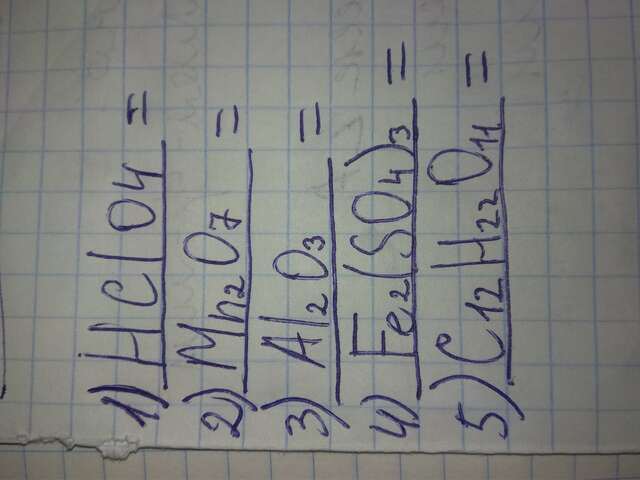 1) HClO4 =
2) Mn2O7 =
3) Al2O3 =
4) Fe2(SO4)3 =
5) C12H22O11 =